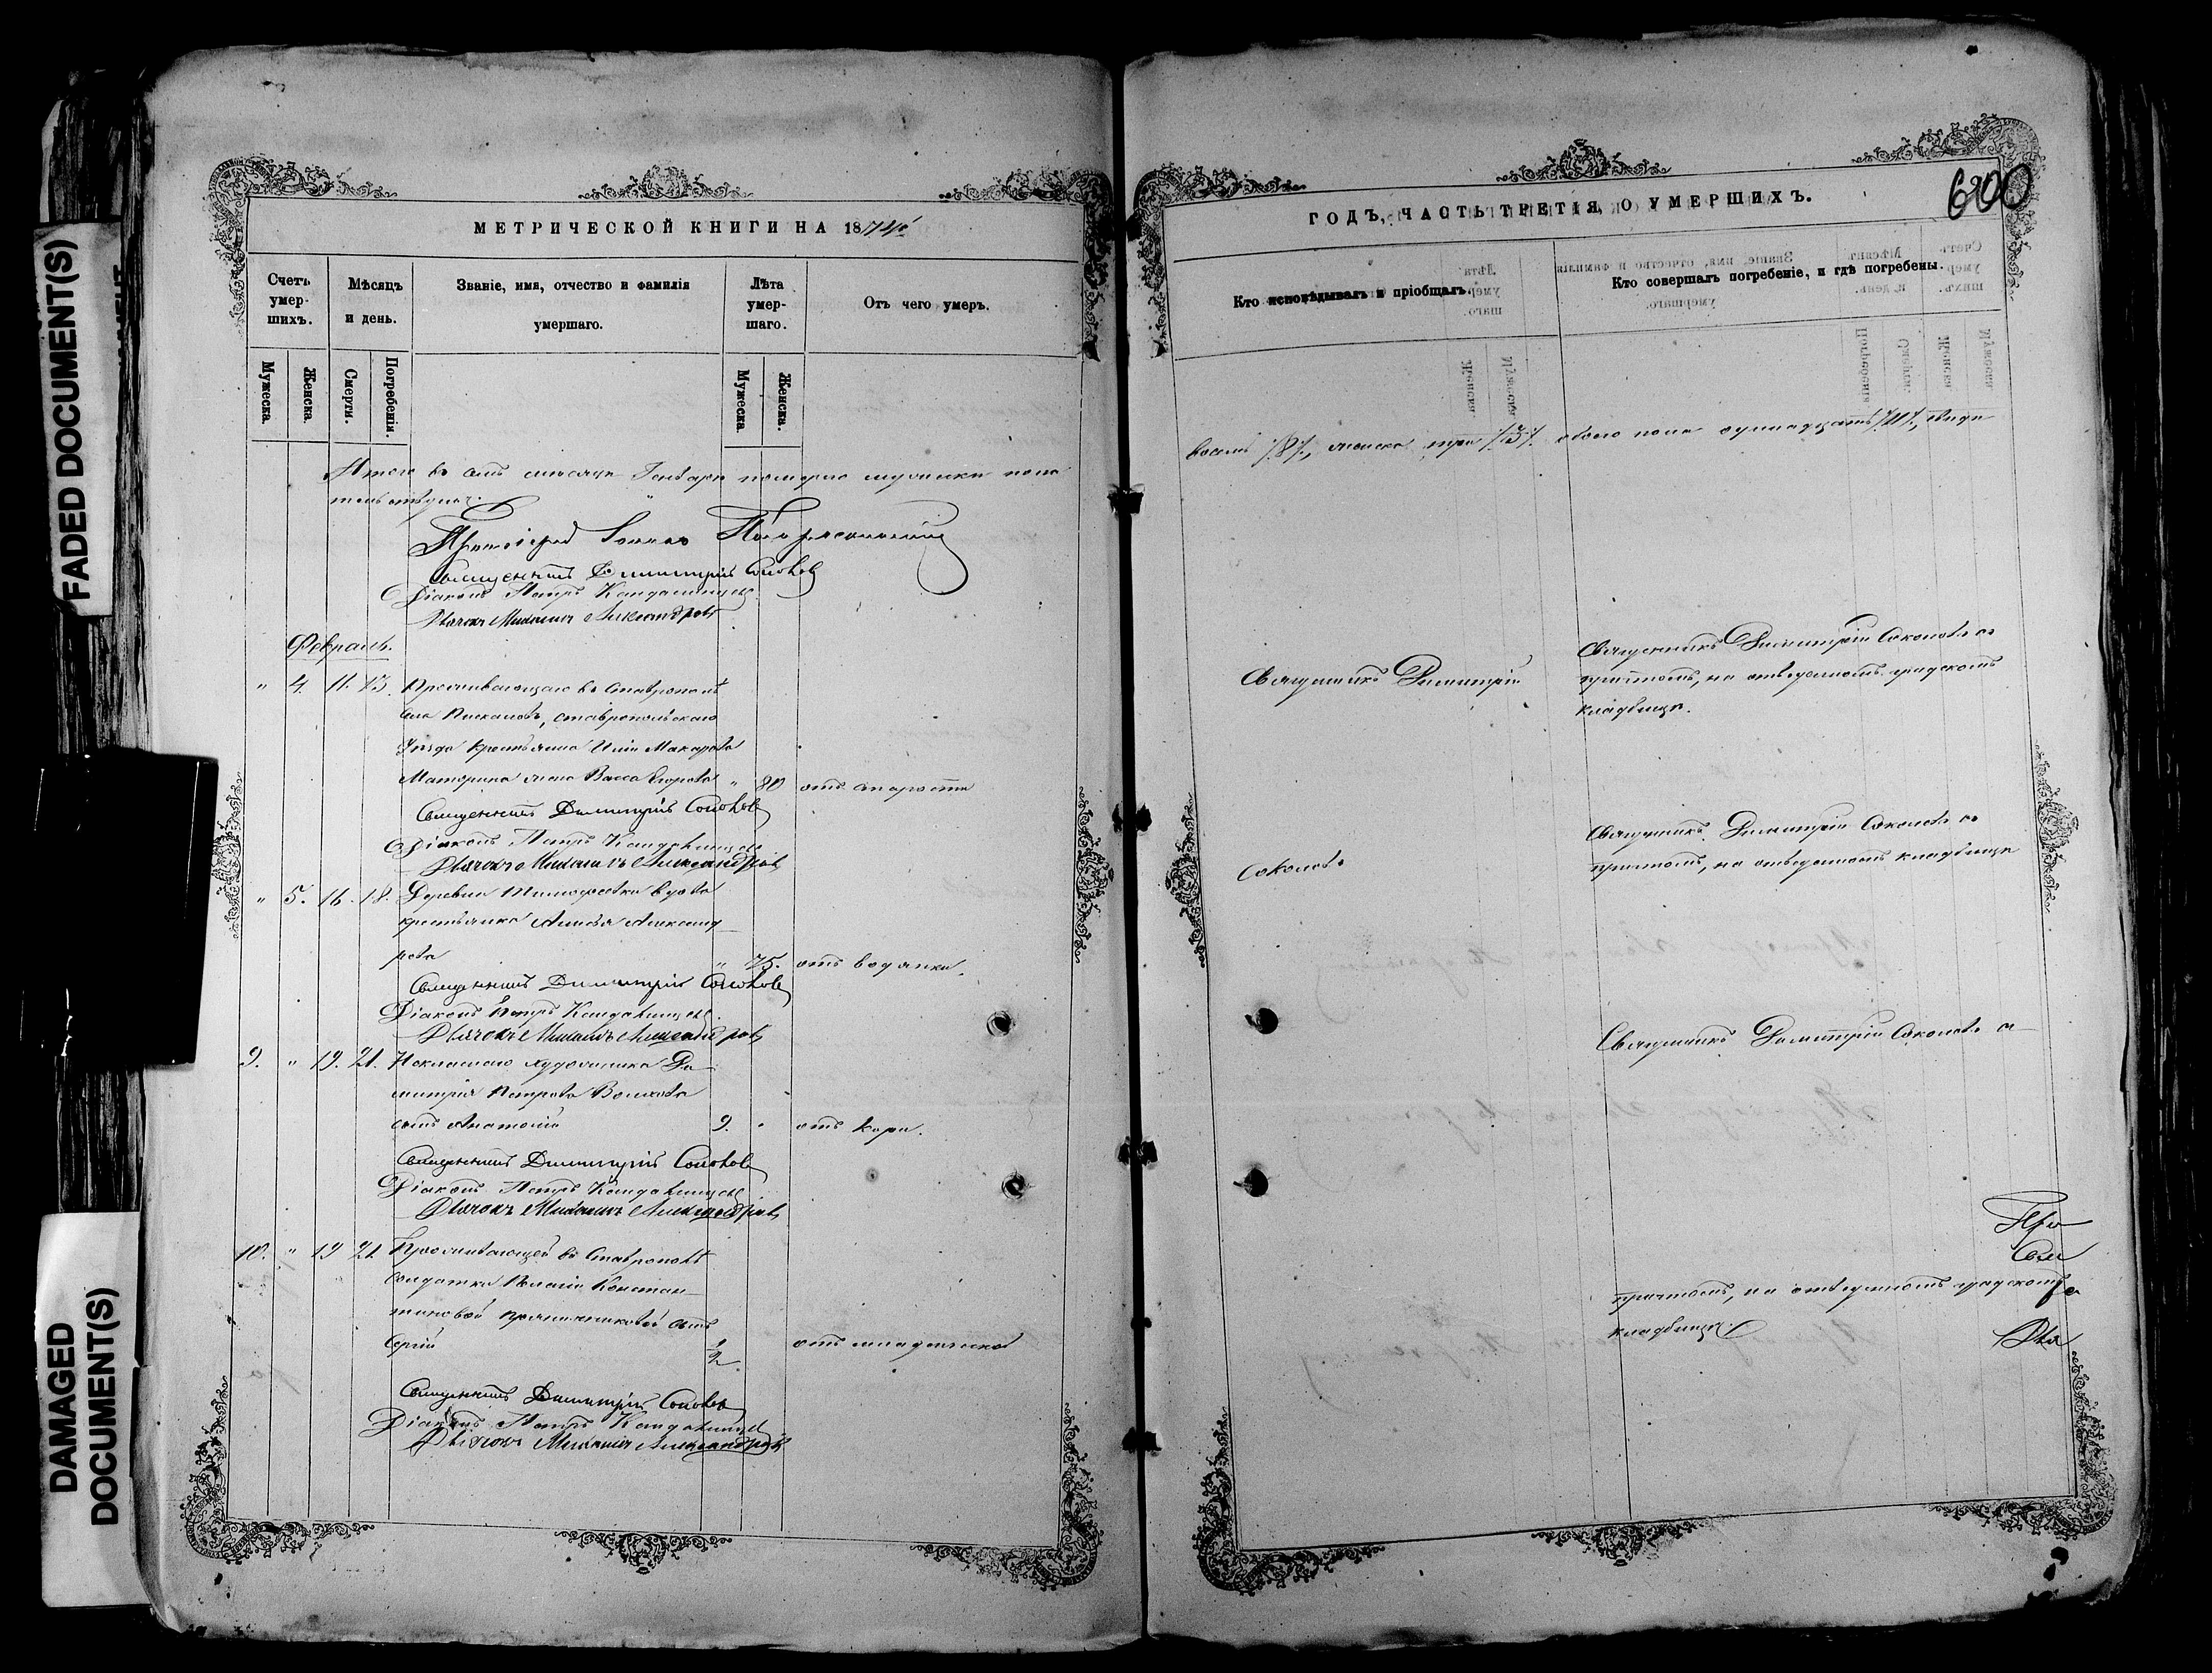 FADED DOCUMENT(S)
DAMAGED
DOCUMENT(S)
МЕТРИЧЕСКОЙ КНИГИ НА 1874
Счетъ умер-шихъ.
Мѣсяцъ и день.
Званіе, имя, отчество и фамилія умершаго.
Лѣта умер-шаго.
Отъ чего умеръ.
Мужеска.
Женска.
Смерти.
Погребенія.
Мужеска.
Женска.
Итого въ семъ мѣсяцѣ Январѣ померло мужеска пола
Протоіерей Іоаннъ
Священникъ Димитрій Соколовъ
Діаконъ Петръ
Дьячокъ Михаилъ Александровъ
Февраль.
" 4. 11. 13. Проживающаго въ Ставрополѣ
села Пискаловъ, Ставропольскаго
уѣзда крестьянина Иліи Макарова
жена Васса Егорова " 80 отъ старости
Священникъ Димитрій Соколовъ
Діаконъ Петръ
Дьячокъ Михаилъ Александровъ
" 5. 16. 18. Деревни Тимофеевки вдова
крестьянка Александ
рова " 75. отъ водянки.
Священникъ Димитрій Соколовъ
Діаконъ Петръ
Дьячокъ Михаилъ Александровъ
9. " 19. 21. художника Ди
митрія Петрова Волкова
сынъ Анатолій 9. " отъ кори.
Священникъ Димитрій Соколовъ
Діаконъ Петръ
Дьячокъ Михаилъ Александровъ
10. " 19 21. Проживающей въ Ставрополѣ
солдатки Пелагіи Констан
тиновой сынъ
Сергій ½ отъ младенческой
Священникъ Димитрій Соколовъ
Діаконъ Петръ
Дьячокъ Михаилъ Александровъ
ГОДЪ, ЧАСТЬ ТРЕТІЯ, О УМЕРШИХЪ.
600
Кто исповѣдывалъ и пріобщалъ.
Кто совершалъ погребеніе, и гдѣ погребены.
восемь /8/, женска три /3/. обоего пола одиннадцать /11/, свидѣ
Священникъ Димитрій
Священникъ Димитрій Соколовъ съ
причтомъ, на отведенномъ градскомъ
кладбищѣ.
Соколовъ
Священникъ Димитрій Соколовъ съ
причтомъ, на отведенномъ кладбищѣ
Священникъ Димитрій Соколовъ съ
Про
Свя
причтомъ, на отведенномъ градскомъ
кладбищѣ.
Дья